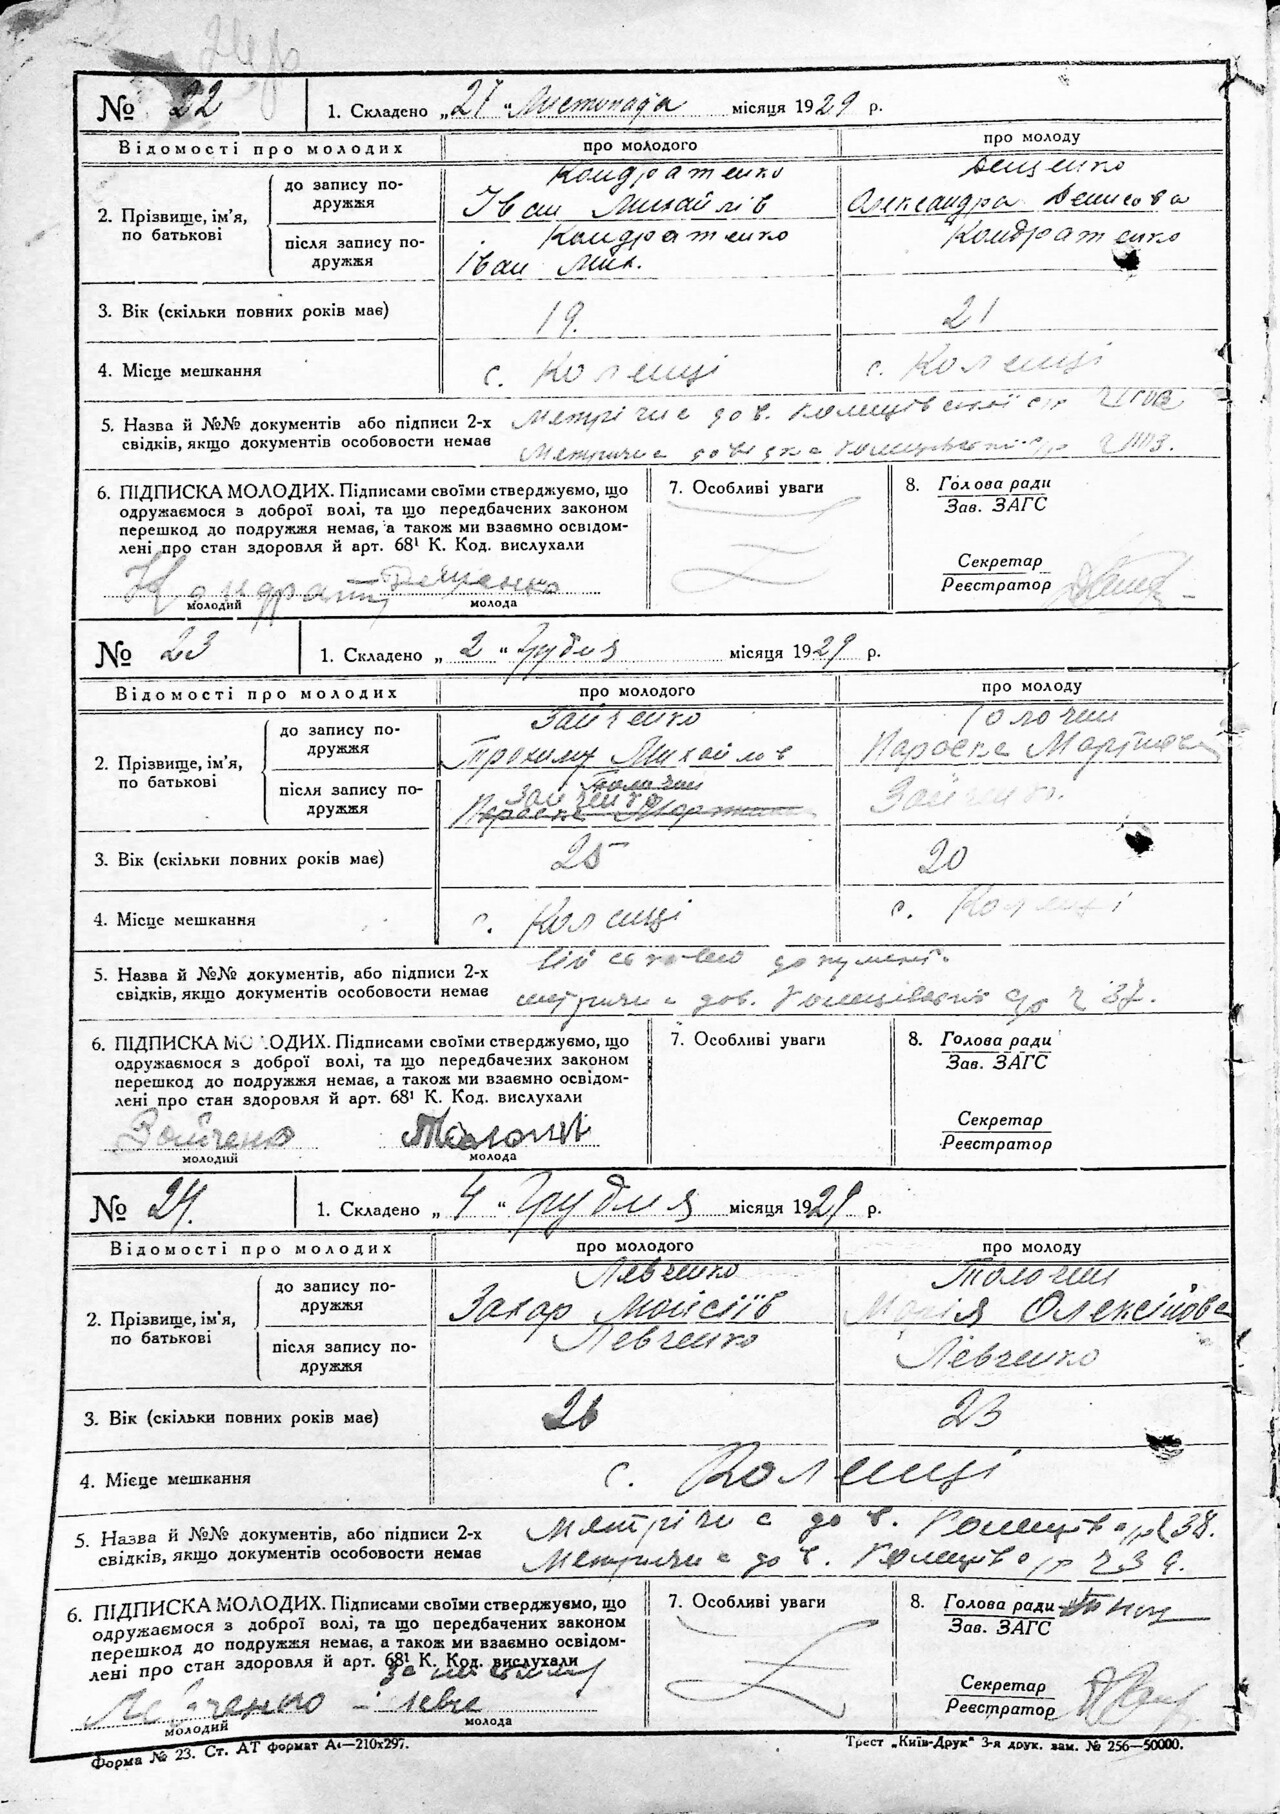 № 22 1. Складено „27“ Листопада місяця 1929 р.
Відомості про молодих про молодого про молоду
2. Прізвище, ім'я, по батькові
до запису подружжя
Кондратенко
Іван Михайлів
Дещенко
Олександра Денисова
після запису подружжя
Кондратенко
Іван Мих.
Кондратенко
3. Вік (скільки повних років має) 19. 21
4. Місце мешкання с. Коленці с. Коленці
5. Назва й №№ документів або підписи 2-х
свідків, якщо документів особовости немає
Метрична дов.
Метрична довідка
6. ПІДПИСКА МОЛОДИХ. Підписами своїми стверджуємо, що
одружаємося з доброї волі, та що передбачених законом
перешкод до подружжя немає, а також ми взаємно освідом-
лені про стан здоровля й арт. 68¹ К. Код. вислухали
молодий молода
7. Особливі уваги
8. Голова ради
Зав. ЗАГС
Секретар
Реєстратор
№ 23 1. Складено „2“ Грудня місяця 1929 р.
Відомості про молодих про молодого про молоду
2. Прізвище, ім'я, по батькові
до запису подружжя
Зайченко
Михайлов
Толочин
Параска
після запису подружжя
Зайченко
Зайченко.
3. Вік (скільки повних років має) 25 20
4. Місце мешкання с. Коленці с. Коленці
5. Назва й №№ документів, або підписи 2-х
свідків, якщо документів особовости немає
документ
дов. ч 37.
6. ПІДПИСКА МОЛОДИХ. Підписами своїми стверджуємо, що
одружаємося з доброї волі, та що передбачених законом
перешкод до подружжя немає, а також ми взаємно освідом-
лені про стан здоровля й арт. 68¹ К. Код. вислухали
Зайченко Толочин
молодий молода
7. Особливі уваги
8. Голова ради
Зав. ЗАГС
Секретар
Реєстратор
№ 24. 1. Складено „4“ Грудня місяця 1929 р.
Відомості про молодих про молодого про молоду
2. Прізвище, ім'я, по батькові
до запису подружжя
Левченко
Захар Мойсіїв
Толочин
Марія Олексійова
після запису подружжя
Левченко
Левченко
3. Вік (скільки повних років має) 26 23
4. Місце мешкання с. Коленці
5. Назва й №№ документів, або підписи 2-х
свідків, якщо документів особовости немає
Метрична дов. ч 38.
Метрична дов. ч 39.
6. ПІДПИСКА МОЛОДИХ. Підписами своїми стверджуємо, що
одружаємося з доброї волі, та що передбачених законом
перешкод до подружжя немає, а також ми взаємно освідом-
лені про стан здоровля й арт. 68¹ К. Код. вислухали
Левченко
молодий молода
7. Особливі уваги
8. Голова ради
Зав. ЗАГС
Секретар
Реєстратор
Форма № 23. Ст. АТ формат А₄—210х297. Трест „Київ-Друк“ 3-я друк. зам. № 256—50000.